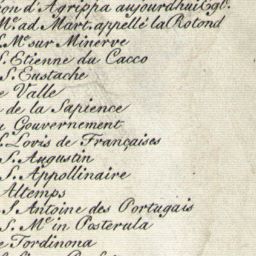 on d'Agrippa aujourdhui Egl.
Mᵉ ad Mart. appéllé la Rotond
S. Mᵉ sur Minerve
S. Etienne du Cacco
S. Eustache
e Valle
de la Sapience
u Gouvernement
S. Lovis de Françaises
S. Augustin
S. Appollinaire
Altemps
S. Antoine des Portugais
S. Mᵉ in Posterula
e Tordinona